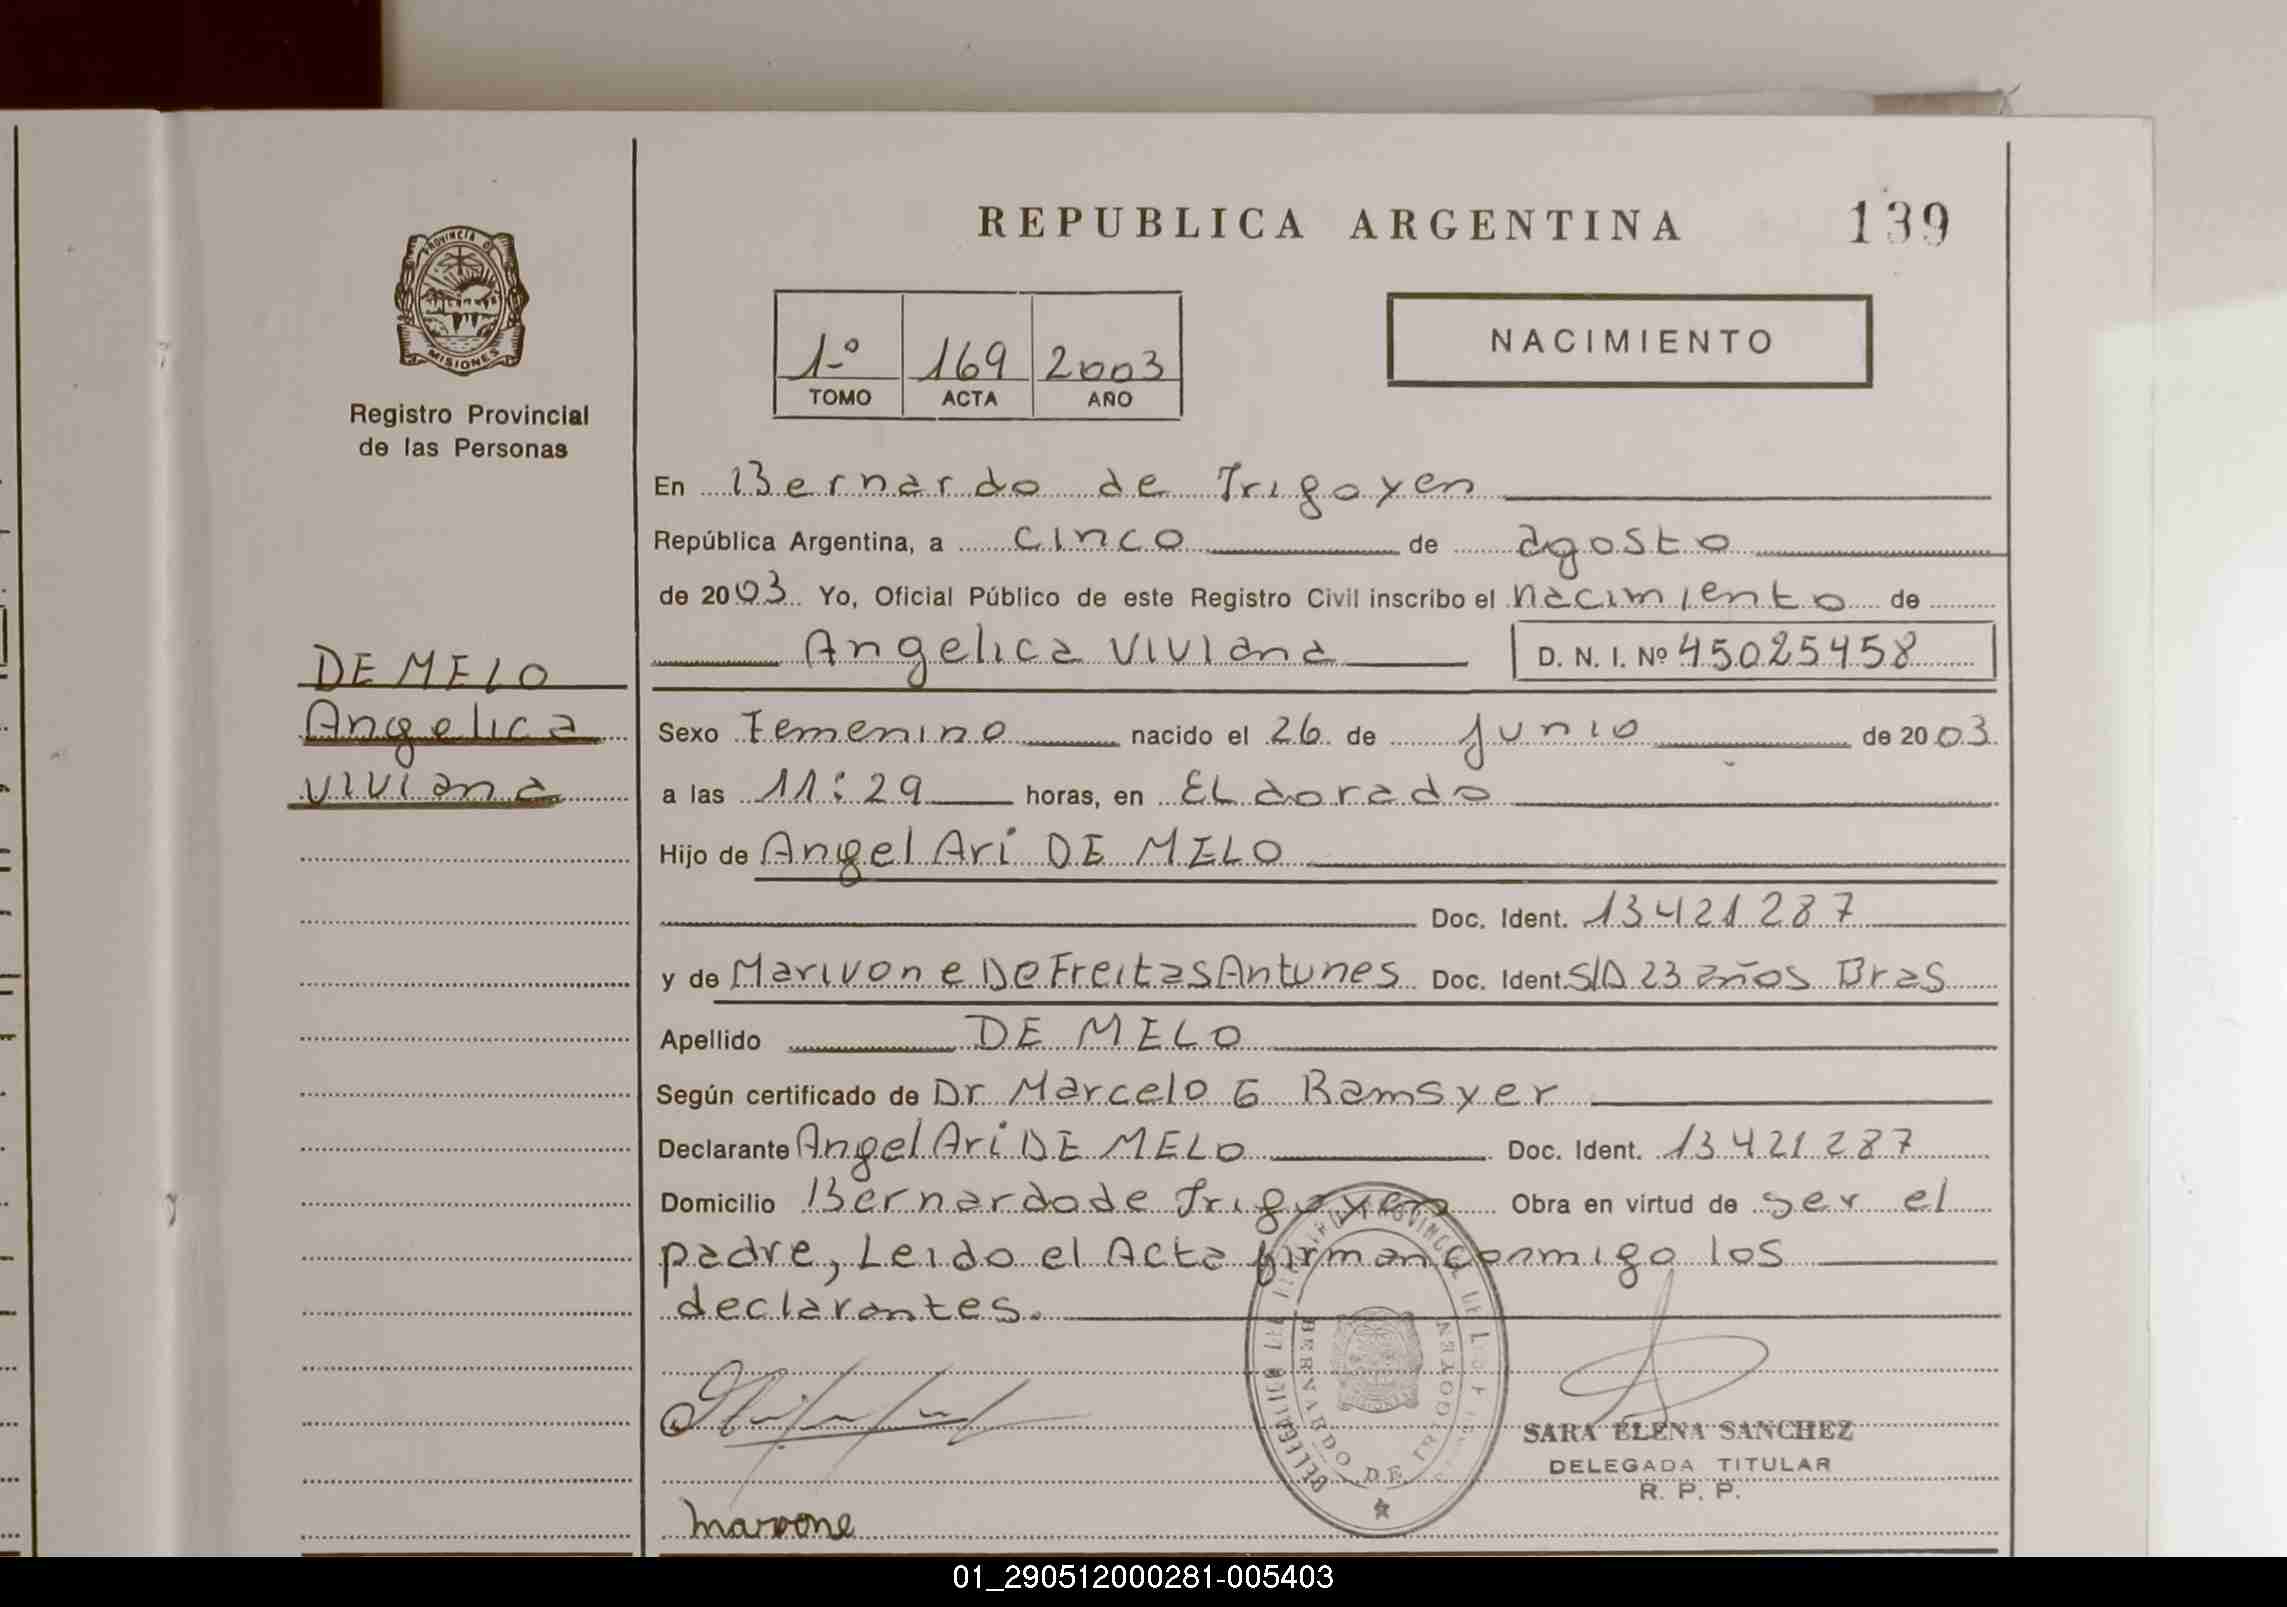 REPUBLICA ARGENTINA
139
PROVINCIA DE
MISIONES
Registro Provincial
de las Personas
1º 169 2003
TOMO ACTA AÑO
NACIMIENTO
En Bernardo de Irigoyen
República Argentina, a cinco de agosto
de 2003 Yo, Oficial Público de este Registro Civil inscribo el nacimiento de
Angelica Viviana D. N. I. Nº 45025458
DE MELO
Angelica
Viviana
Sexo Femenino nacido el 26 de junio de 2003
a las 11:29 horas, en ELdorado
Hijo de Angel Ari DE MELO
Doc. Ident. 13421287
y de Marivone De Freitas Antunes Doc. Ident. S/D 23 años Bras
Apellido DE MELO
Según certificado de Dr Marcelo G Ramsyer
Declarante Angel Ari DE MELO Doc. Ident. 13421287
Domicilio Bernardo de Irigoyen Obra en virtud de ser el
padre, Leido el Acta firman conmigo los
declarantes.
BERNARDO DE IRIGOYEN
SARA ELENA SANCHEZ
DELEGADA TITULAR
R. P. P.
01_290512000281-005403